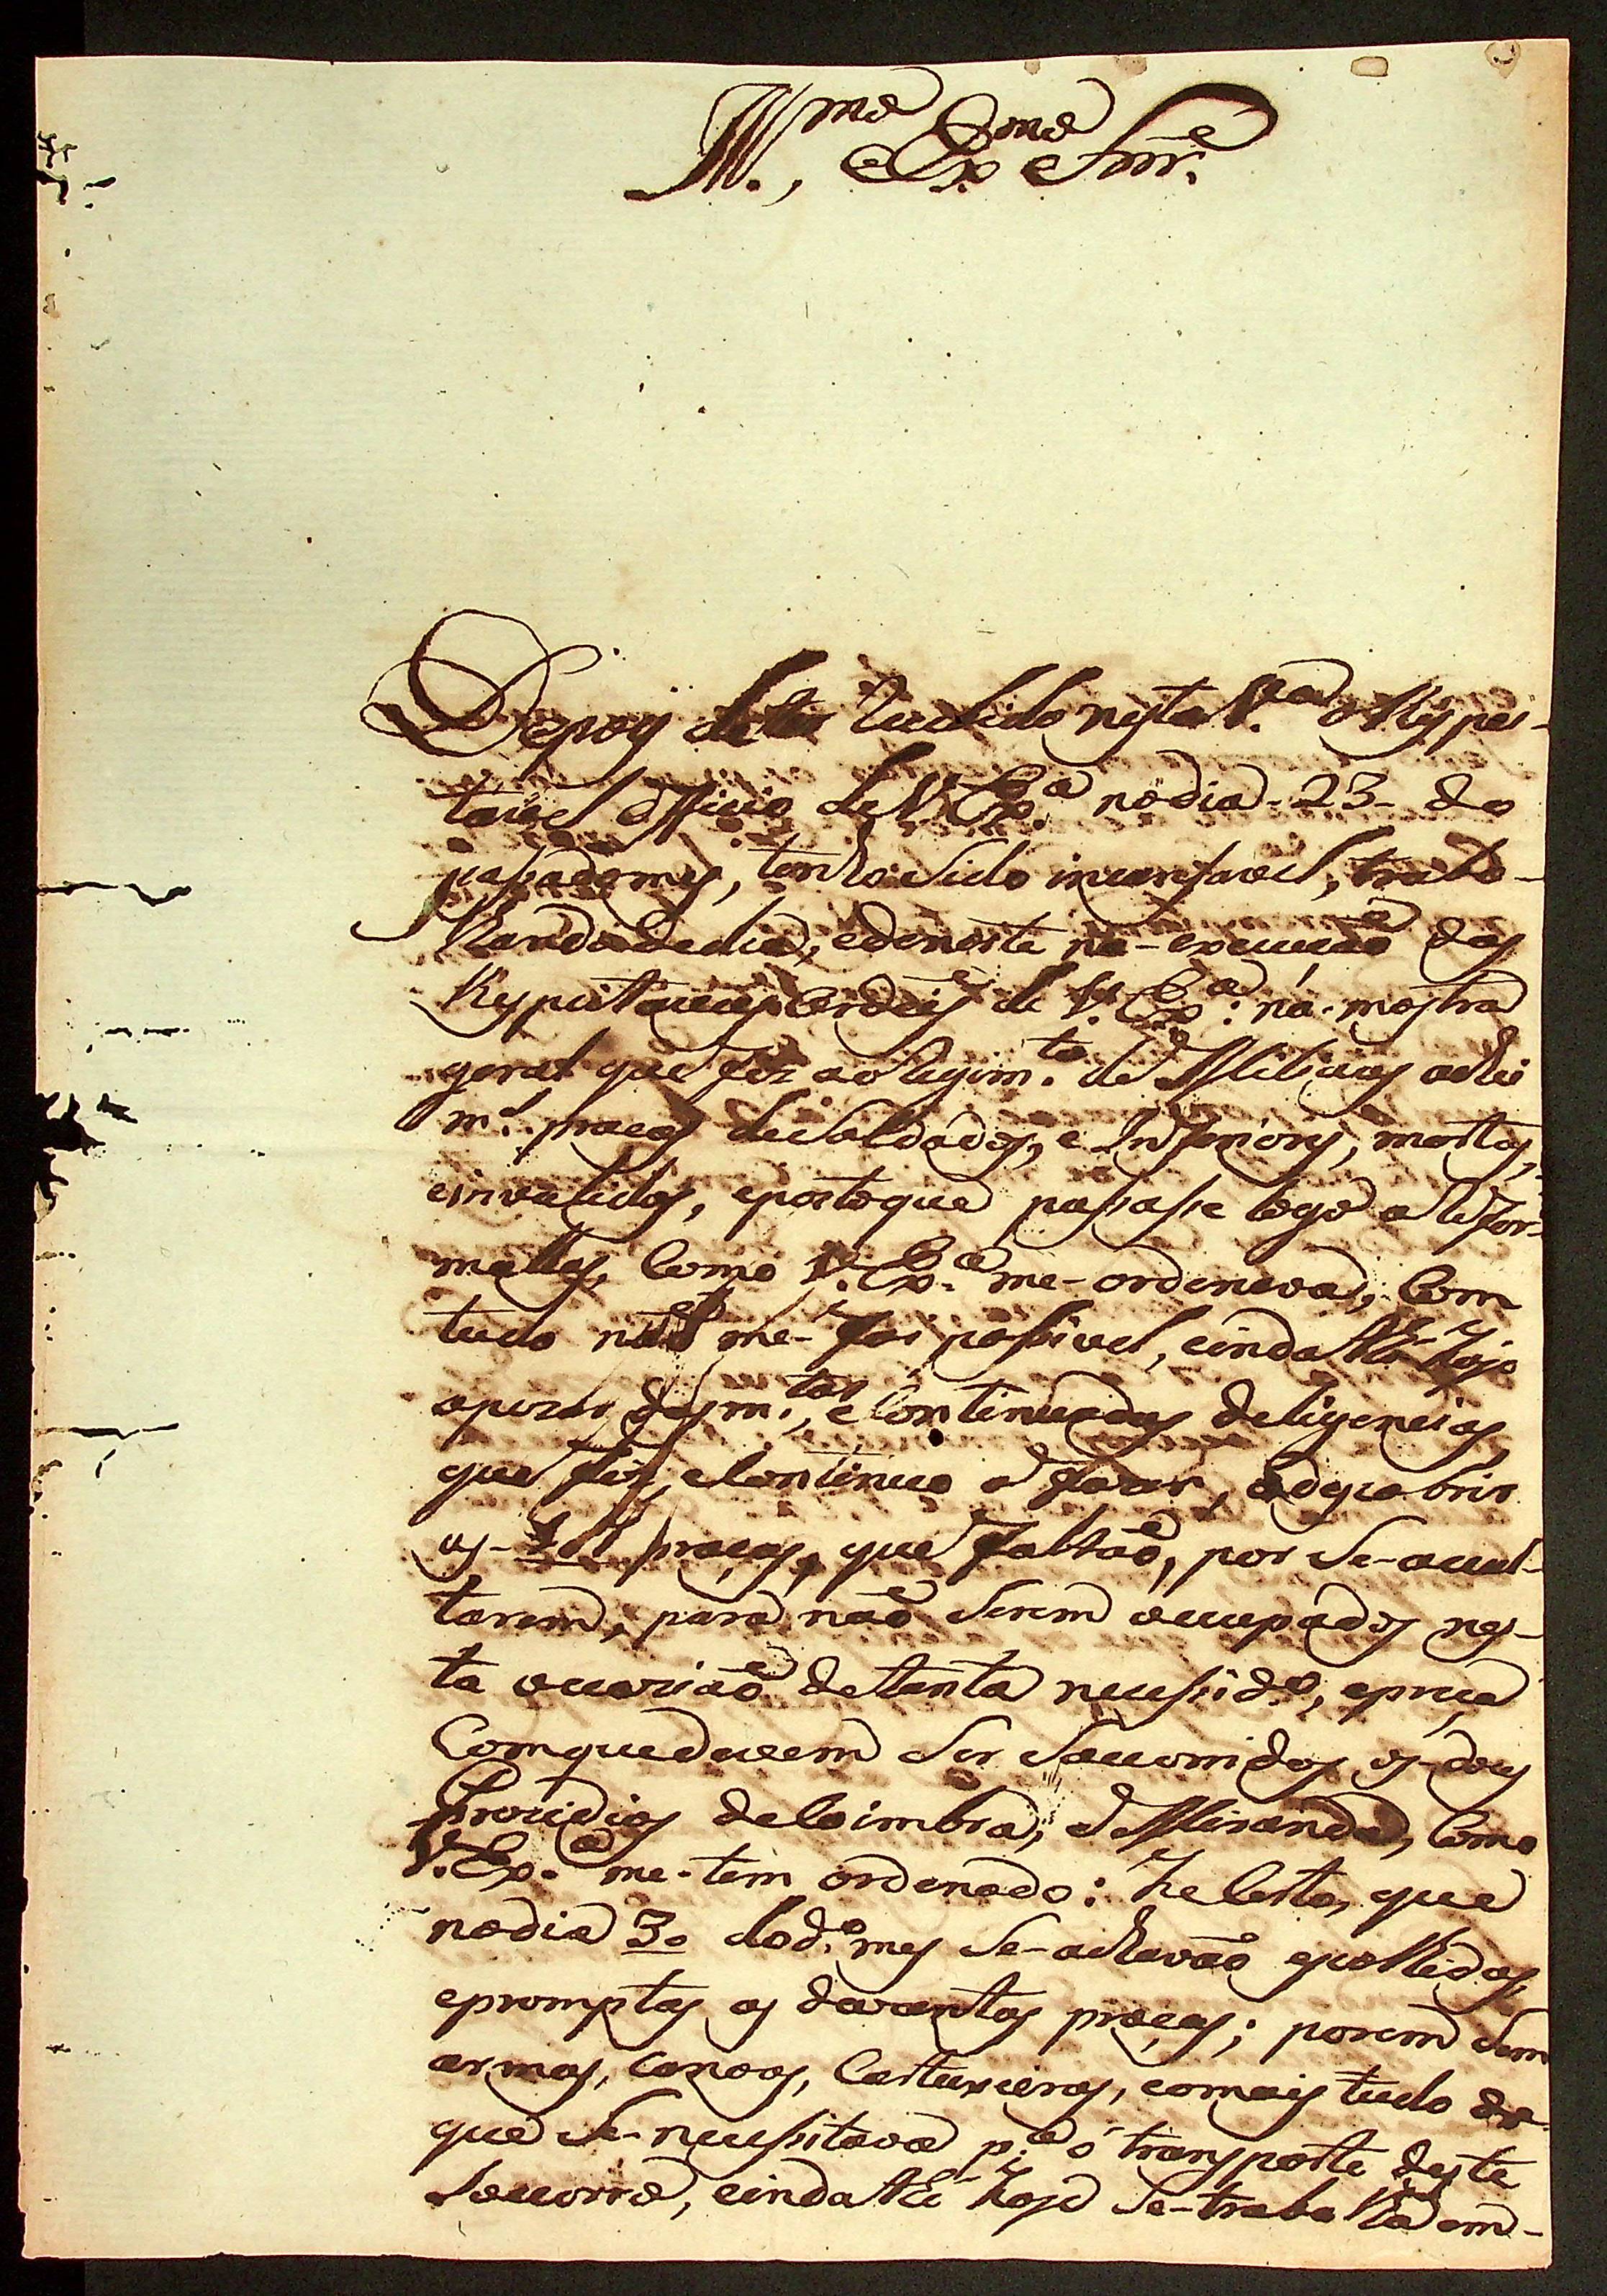 Ill.mo, e Ex.mo Snr.
Depoys de ter recebido nesta V.a o Respei-
tavel officio de V. Ex.a no dia - 23 - do
passado mes, tenho sido incansavel, traba-
lhando de dia, e de noite na - execução das
Respeitaveis Ordens de V. Ex.a: na - mostra
geral que fiz ao Regim.to de Milicias achei
m.s praças de Soldados, e Inferiores, mortos,
e invalidos, e posto que passasse logo a Refor-
mallos, Como V. Ex.a me - ordenava, Com
tudo não me - foi possivel, e inda the - hoje
apezar das m.tas, e Continuadas deligencias
que fiz, e Continuo a fazer, a descobrir
as - praças, que faltão, por se - ocul-
tarem, para não serem ocupados nes-
ta occazião de tanta necessid.e, e preça
Com que devem ser Socorridos os - dous
Prezidios de Coimbra, e Miranda, Como
V. Ex.a me - tem ordenado: he Certo, que
no dia 30 do d.o mes se - achavão escolhidas,
e promptas as duzentas praças; porem Sem
armas, canoas, Cartuxeiras, e o mais tudo de -
que se - necessitava p.a o transporte deste
Socorro, e inda the hoje se - trabalha em -